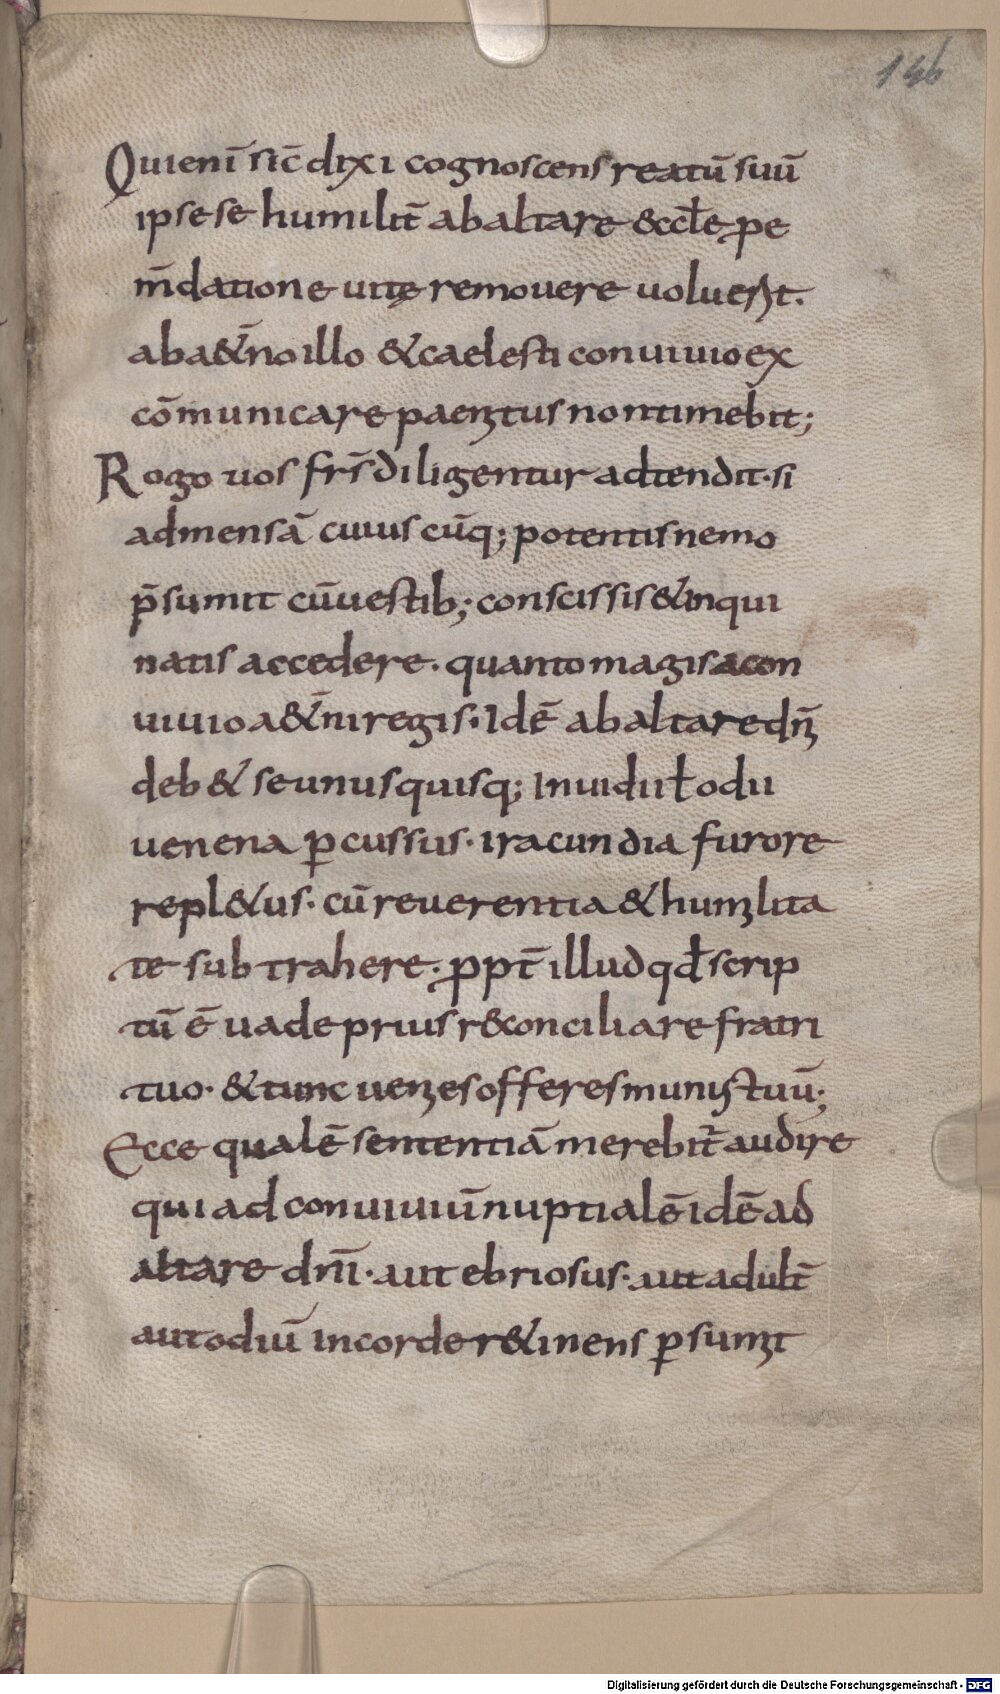 146
Quienī sic̄ dixi cognoscens reatū suū
ipse se humilit̄ ab altare &ccłe pe
m̄datione uitę remouere uoluerit.
ab a&̄no illo & caelesti conuiuio ex
cōmunicare paenitus non timebit;
Rogo uos frs̄ diligentur adtendit· si
ad mensā cuius cūq; potentis nemo
p̄sumit cū uestib; conscissis & inqui
natis accedere. quanto magis a con
uiuio a&̄ni regis· Idē ab altare dn̄i
deb& se unus quisq; Inuidii ł odii
uenena ꝑcussus· iracundia furore
repl&us· cū reuerentia & humilita
te subtrahere. ꝓpt̄ illud qđ scrip
tū ē uade prius r&conciliare fratri
tuo· & tunc uenies offeres munus tuū;
Ecce qualē sententiā merebit̄ audire
qui ad conuiuiū nuptialē idē ad
altare dn̄i· aut ebriosus· aut adult̄
aut odiū in corde r&inens ꝑsumit
Digitalisierung gefördert durch die Deutsche Forschungsgemeinschaft - DFG